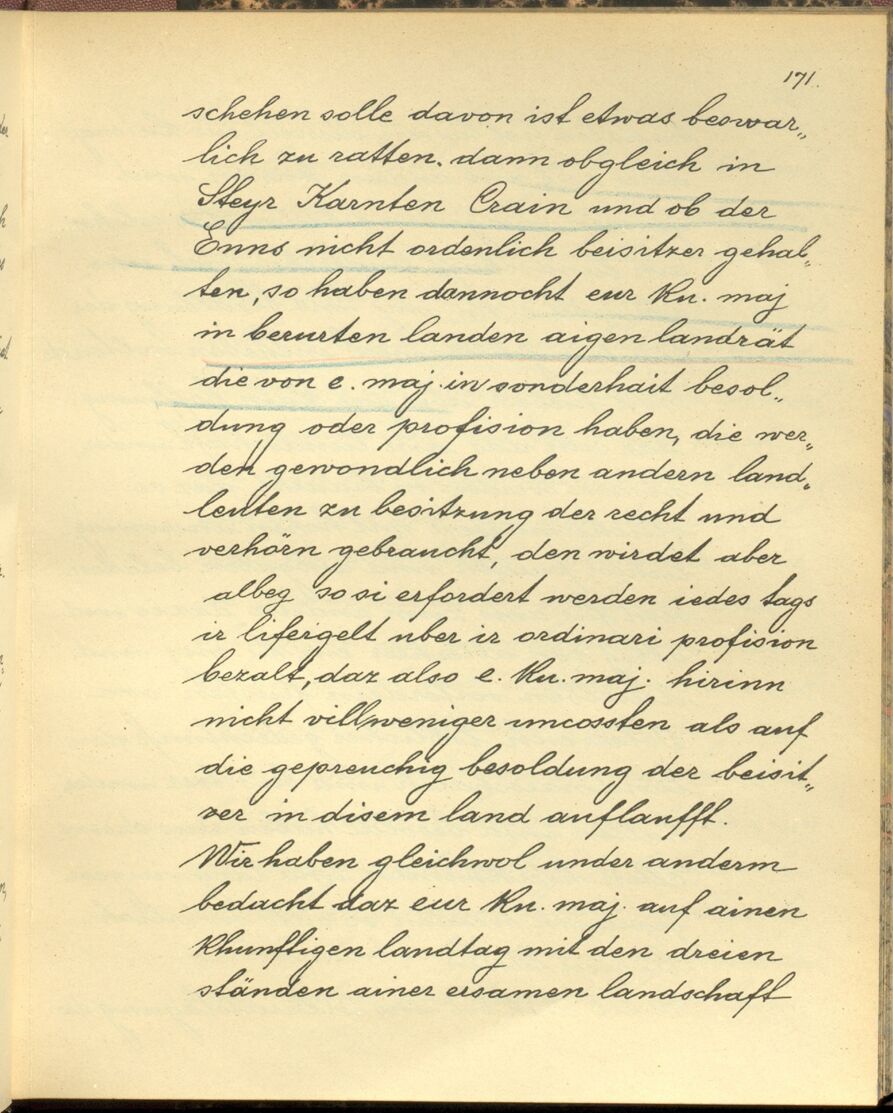 171.
schehen solle davon ist etwas beswar„
lich zu ratten. dann obgleich in
Steyr Karnten Crain und ob der
Enns nicht ordenlich beisitzer gehal„
ten, so haben dannocht eur Ku. maj
in berurten landen aigen landrät
die von e. maj. in sonderhait besol„
dung oder profision haben, die wer„
den gewondlich neben andern land„
leuten zu besitzung der recht und
verhörn gebraucht, den wirdet aber
albeg so si erfordert werden iedes tags
ir lifergelt uber ir ordinari profision
bezalt, daz also e. Ku. maj. hirinn
nicht vill weniger uncossten als auf
die gepreuchig besoldung der beisit„
zer in disem land auflaufft.
Wir haben gleichwol under anderm
bedacht daz eur Ku. maj. auf ainen
khunfftigen landtag mit den dreien
ständen ainer ersamen landschaft